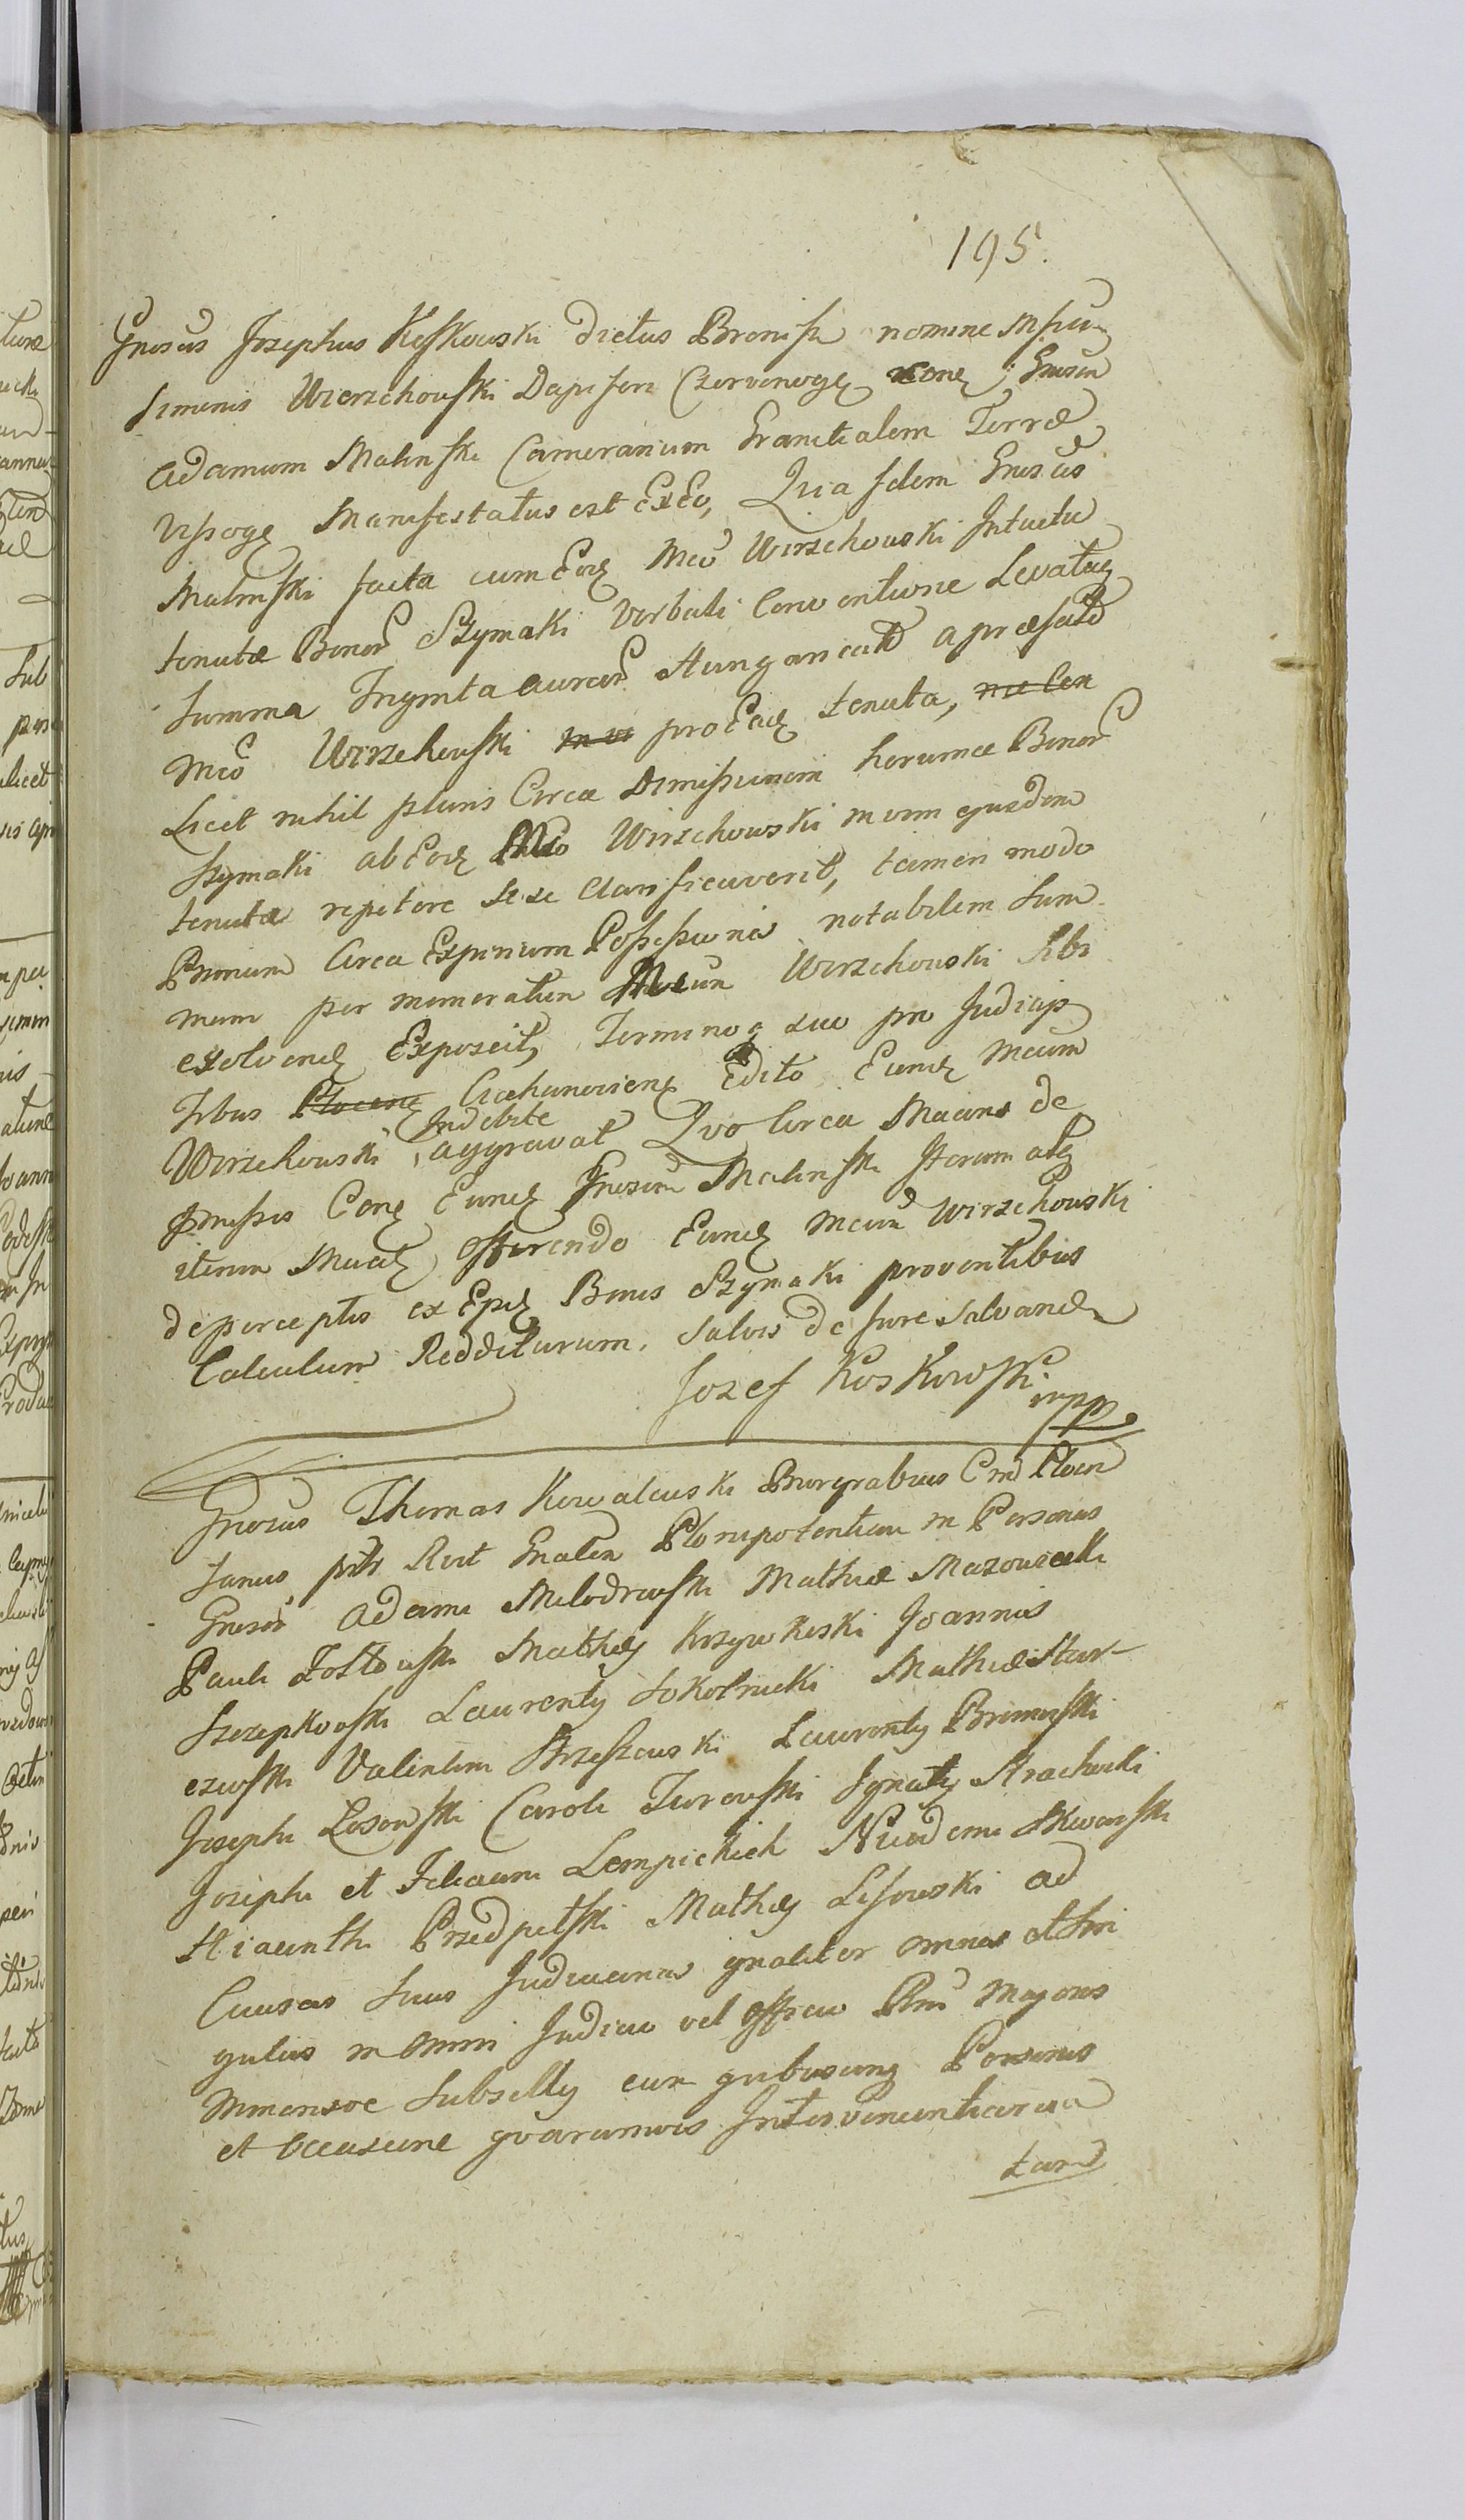 195.
Gnosus Josephus Koskowski dictus Bronisz nomine Mfici
Simonis Wierzchowski Dapiferi Czervonogę cone Gnosum
Adamum Malinski Camerarium Granitialem Terræ
Wyszogę Manifestatus est ex Eo, Quia Idem Gnosus
Malinski facta cum Eodę Mco Wirzchowski Intuitu
tenutæ Bonor Szymaki Verbali Conventione Levataq
Summa Triginta aureor Hungaricał a præfato
Mco Wirzchowski pro Eadę tenuta,
Licet nihil pluris Circa dimissionem horumce Bonor
Szymaki ab Eodę Mco Wirzchowski in vim ejusdem
tenutæ repetere sese clarificaverit, tamen modo
Primum Circa Expirium Possessionis notabilem Sum
mam per memoratum Mcum Wirzchowski Sibi
exolvendę Exposcit, Terminoq suo pro Judicijs
Trbus Ciechanoviens Edito Eundę Mcum
Indebite
Wirzchowski aggravat Quo Circa Maans de
pmissis Conę Eundę Gnosum Malinski Iterum atq
iterum Maatę offerendo Eundę Mcum Wirzchowski
de perceptis ex Epę Bonis Szymaki proventibus
Calculum Redditurum. Salvis de Jure Salvandę
Jozef Koskowski
mpp.
Gnosus Thomas Kowalewski Burgrabius Cms Plocn
Sunus Rect Gnalem Plenipotentiam in Personas
Gnosor Adami Mlodzewski Mathiæ Mazowiecki
Pauli Zoltowski Mathiæ Krzywkoski Joannis
Szczepkowski Laurenty Sokolnicki Mathiæ Star
czewski Valentini Strzeszewski Laurenty
Josephi Lesowski Caroli Turowski Ignaty Strachocki
Josephi et Feliciani Lempickich Nicodemi Skwarski
Hiacinthi Przedpełski Mathiæ Lisowski ad
Causas Suas Judiciarias gnaliter omnes et Sin
gulas in Omni Judicio vel Officio Rni Majoris
Minorisve Subselly cum quibuscunq Personis
et occasione qvarumvis Intervenientiarum a
tam